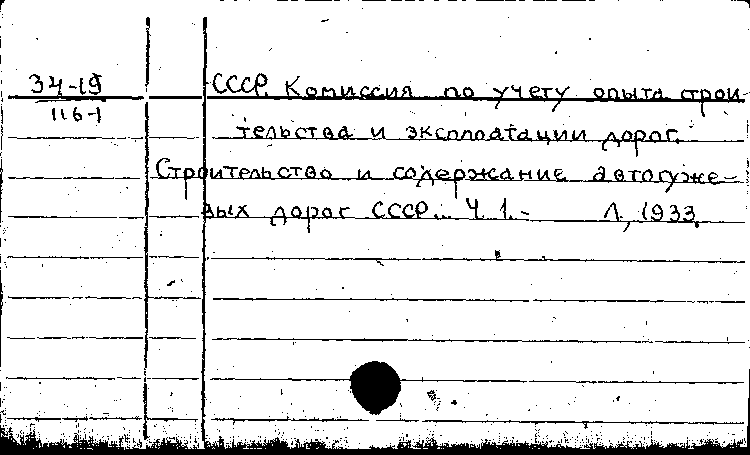 34-19
116-1
СССР. Комиссия по учету опыта строи
тельства и эксплоатации дорог.
Строительство и содержание автогуже-
вых дорог СССР... Ч. 1.- Л, 1933.